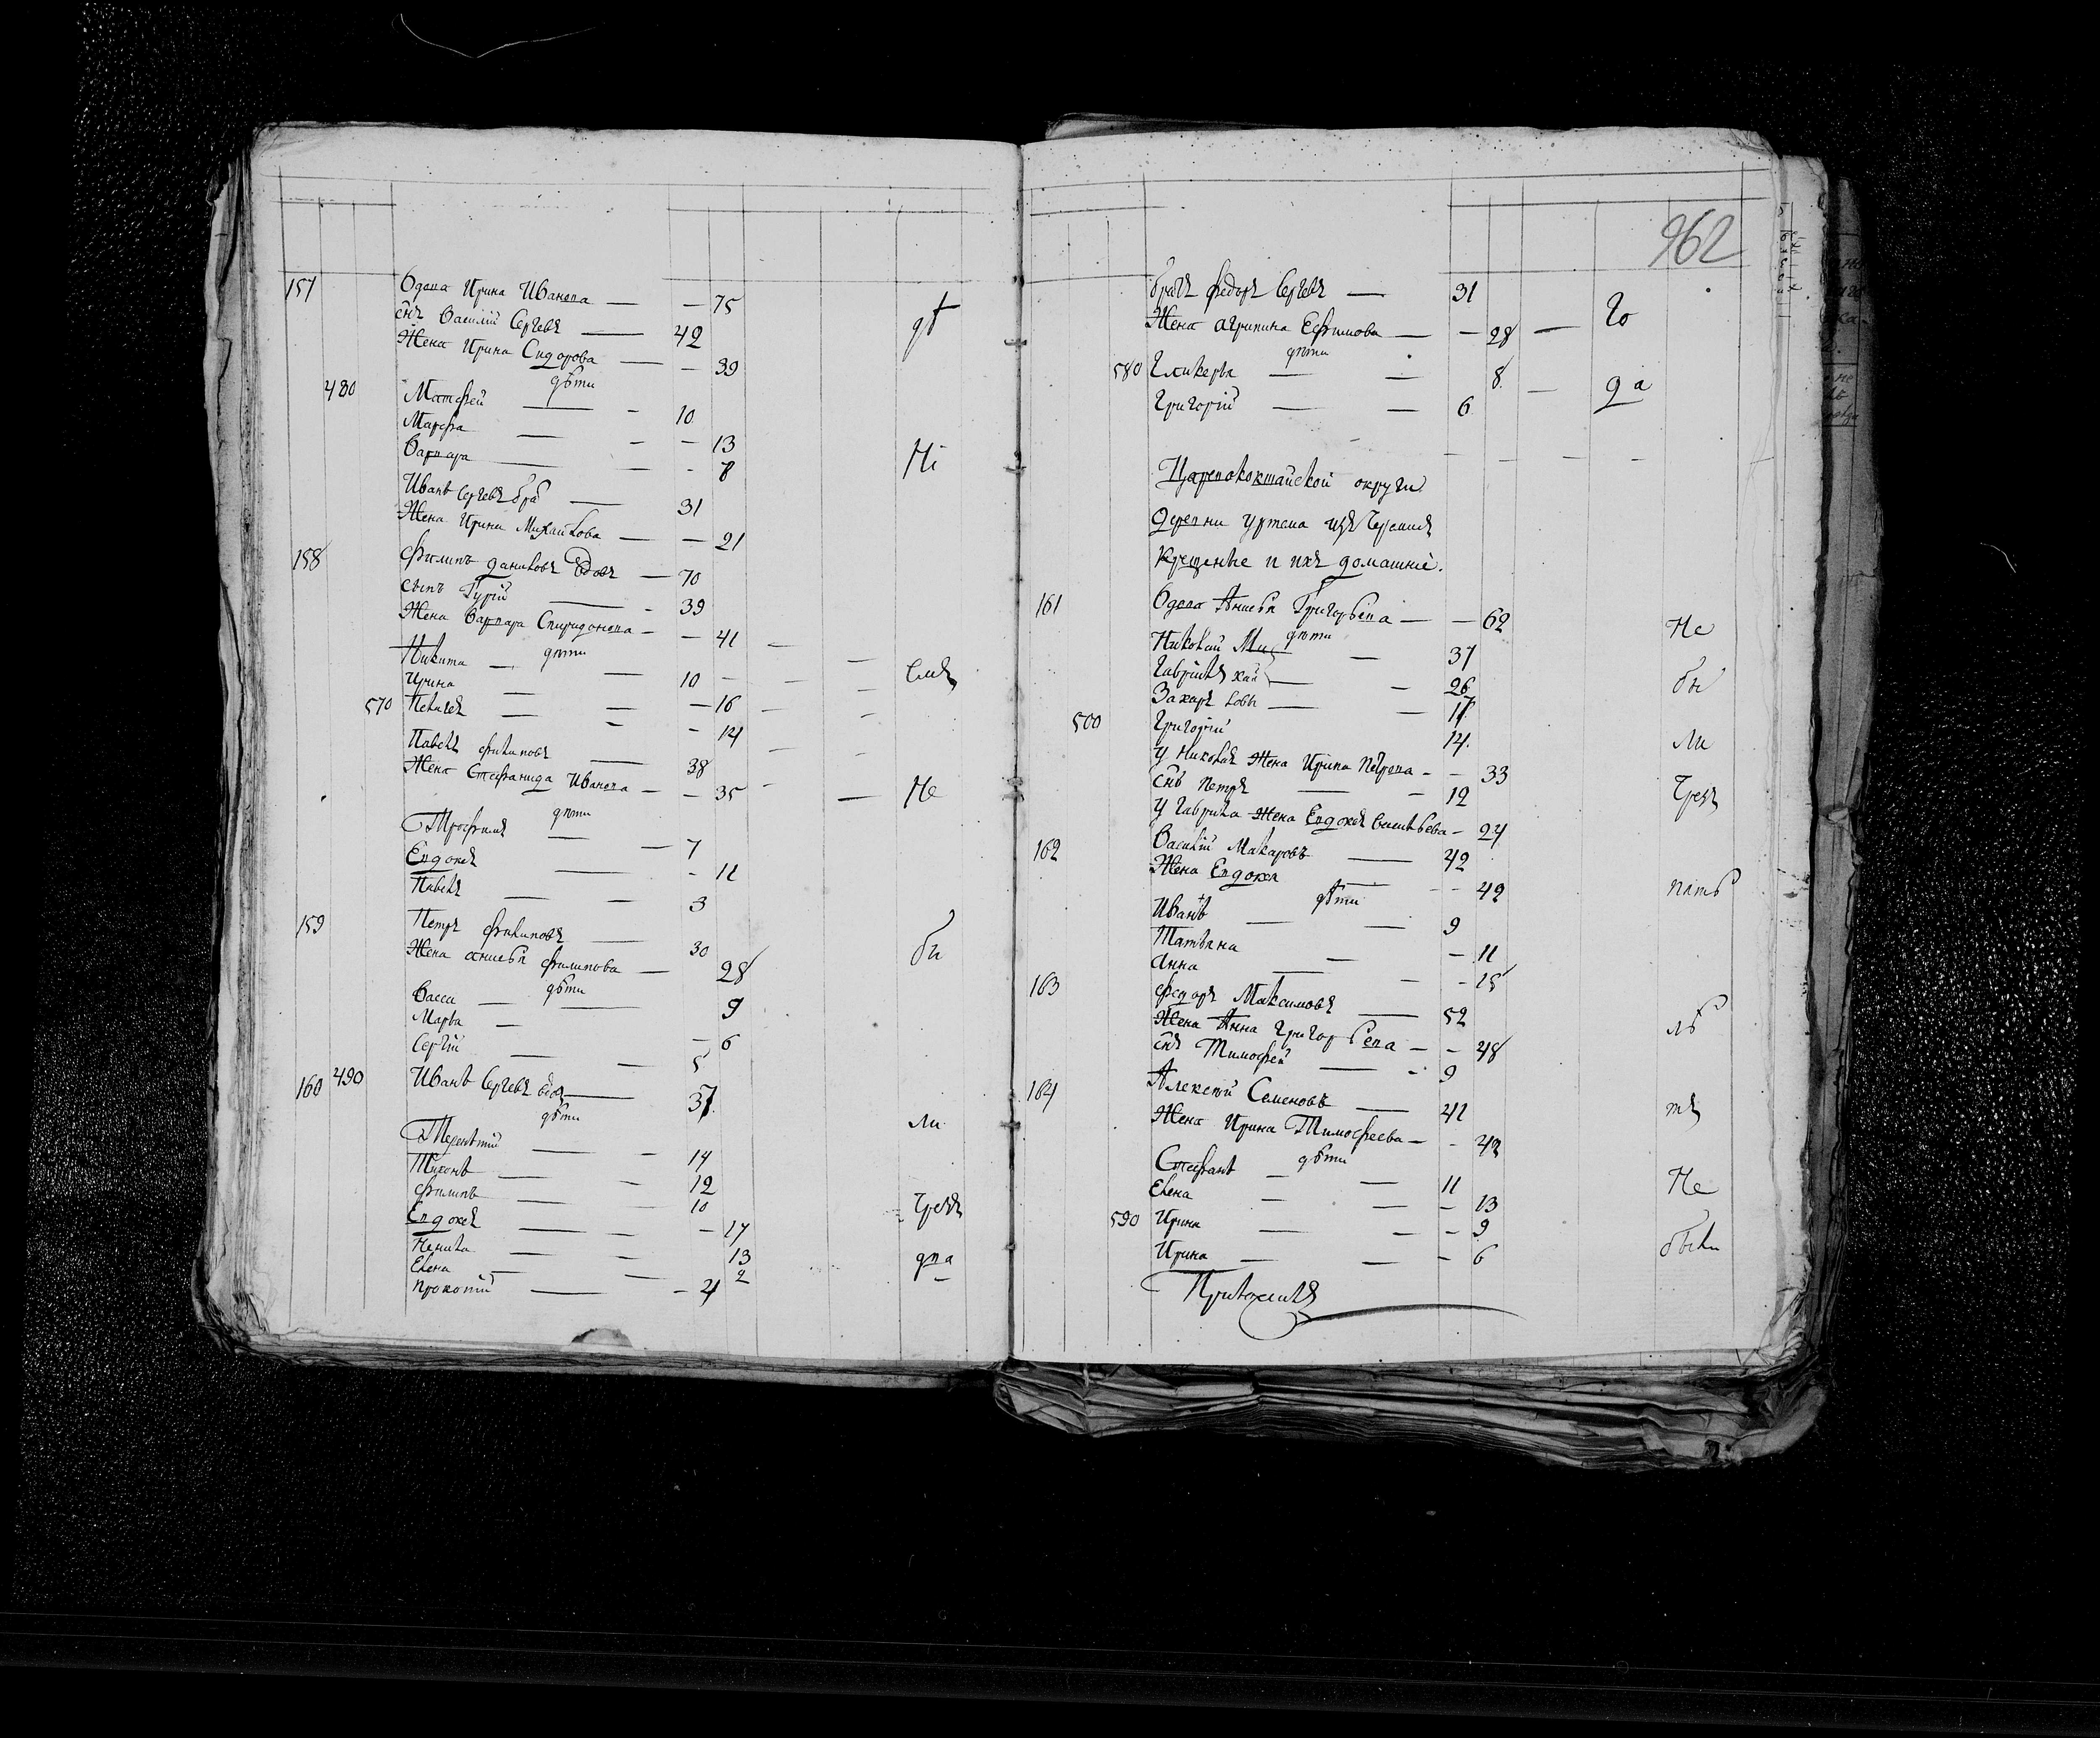 157 Вдова Ирина Иванова — — 75
снъ Василий Сергевъ — 42
Жена Ирина Сидорова — — 39
дѣти
480 Матфей — - 10
Марфа — - - 13
Варвара — - - 8
Иванъ Сергевъ бра — 31
Жена Ирина Михайлова — — 21
158 Филипъ Даниловъ вдовъ — 70
сынъ Гурій — - 39
Жена Варвара Спиридонова - — 41
дѣти
Никита — — 10
Ирина — — — 16
570 Пелагея — - - 14
Павелъ Филиповъ — 38
Жена Стефанида Иванова — — 35
дѣти
Трофимъ — — 7
Евдокея — - 11
Павелъ — — 3
159 Петръ Филиповъ — 30
Жена Анисья Филипова — 28
дѣти
Васса — — 9
Марѳа — — 6
Сергій — — 5
160 490 Иванъ Сергевъ вдов — 37
дѣти
Терентій — - 14
Тихонъ — - 12
Филипъ — — 10
Евдокея — — — 17
Ненила — — 13
Елена — — 2
Прокопій — - 4
дѣ
Ні
Не
бы
ли
двa
962
братъ Федоръ Сергевъ — 31
Жена Агрипина Ефимова — — 28 — го
дѣти
580 Гликерья — — 8 — да
Григорій — — 6
Царевококшайской округи
Деревни Уртема изъ Черемис
Крещеные и ихъ домашніе.
161 Вдова Анисья Григорьева — — 62
дѣти
Николай Ми — 37
Гаврила хай — - 26
Захаръ ловы — — 17
500 Григорій 14.
У Николая Жена Ирина Петрова - — 33
снъ Петръ — — 12
У Гаврила Жена Евдокея Васильева — 24
162 Василій Макаровъ — 42
Жена Евдокея — - - 42
дѣти
Иванъ — — 9
Татьяна — — 11
Анна — — - 15
163 Федоръ Максимовъ — 52
Жена Анна Григорьева — - 48
снъ Тимофей — - 9
164 Алексѣй Семеновъ — 41
Жена Ирина Тимофеева — - 42
дѣти
Стефанъ — — 11
Елена — — — 13
590 Ирина — — - 9
Ирина — — — 6
Не
бы
ли
пять
лѣ
тъ
Не
были